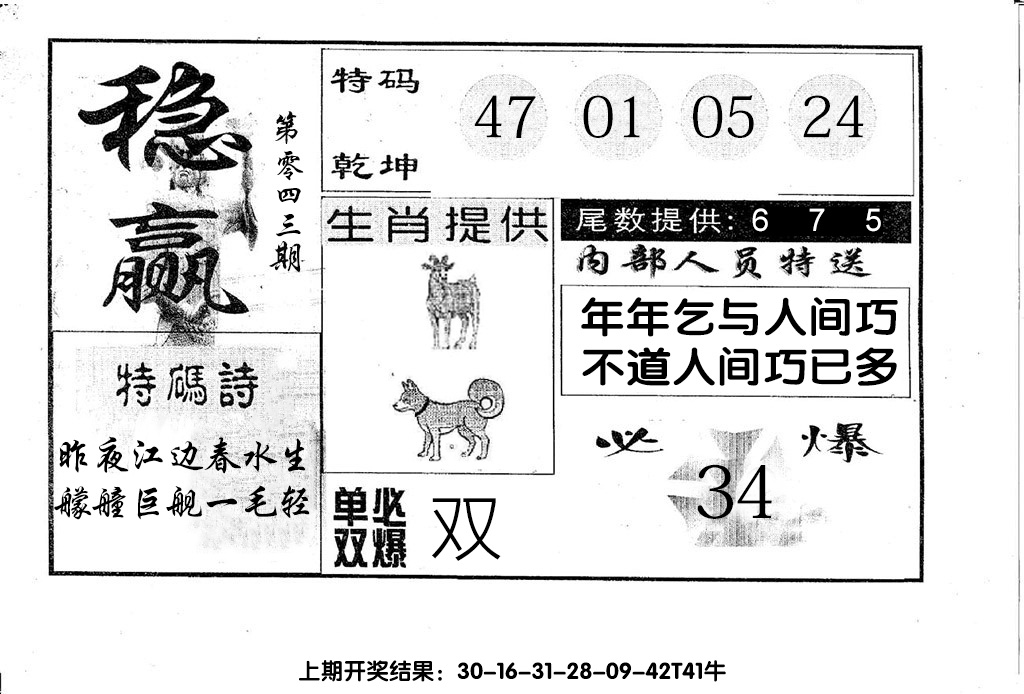 稳赢
第零四三期
特码
乾坤
47 01 05 24
生肖提供
尾数提供: 6 7 5
内部人员特送
年年乞与人间巧
不道人间巧已多
特碼詩
昨夜江边春水生
艨艟巨舰一毛轻
单双
必爆
双
必爆
34
上期开奖结果：30-16-31-28-09-42T41牛